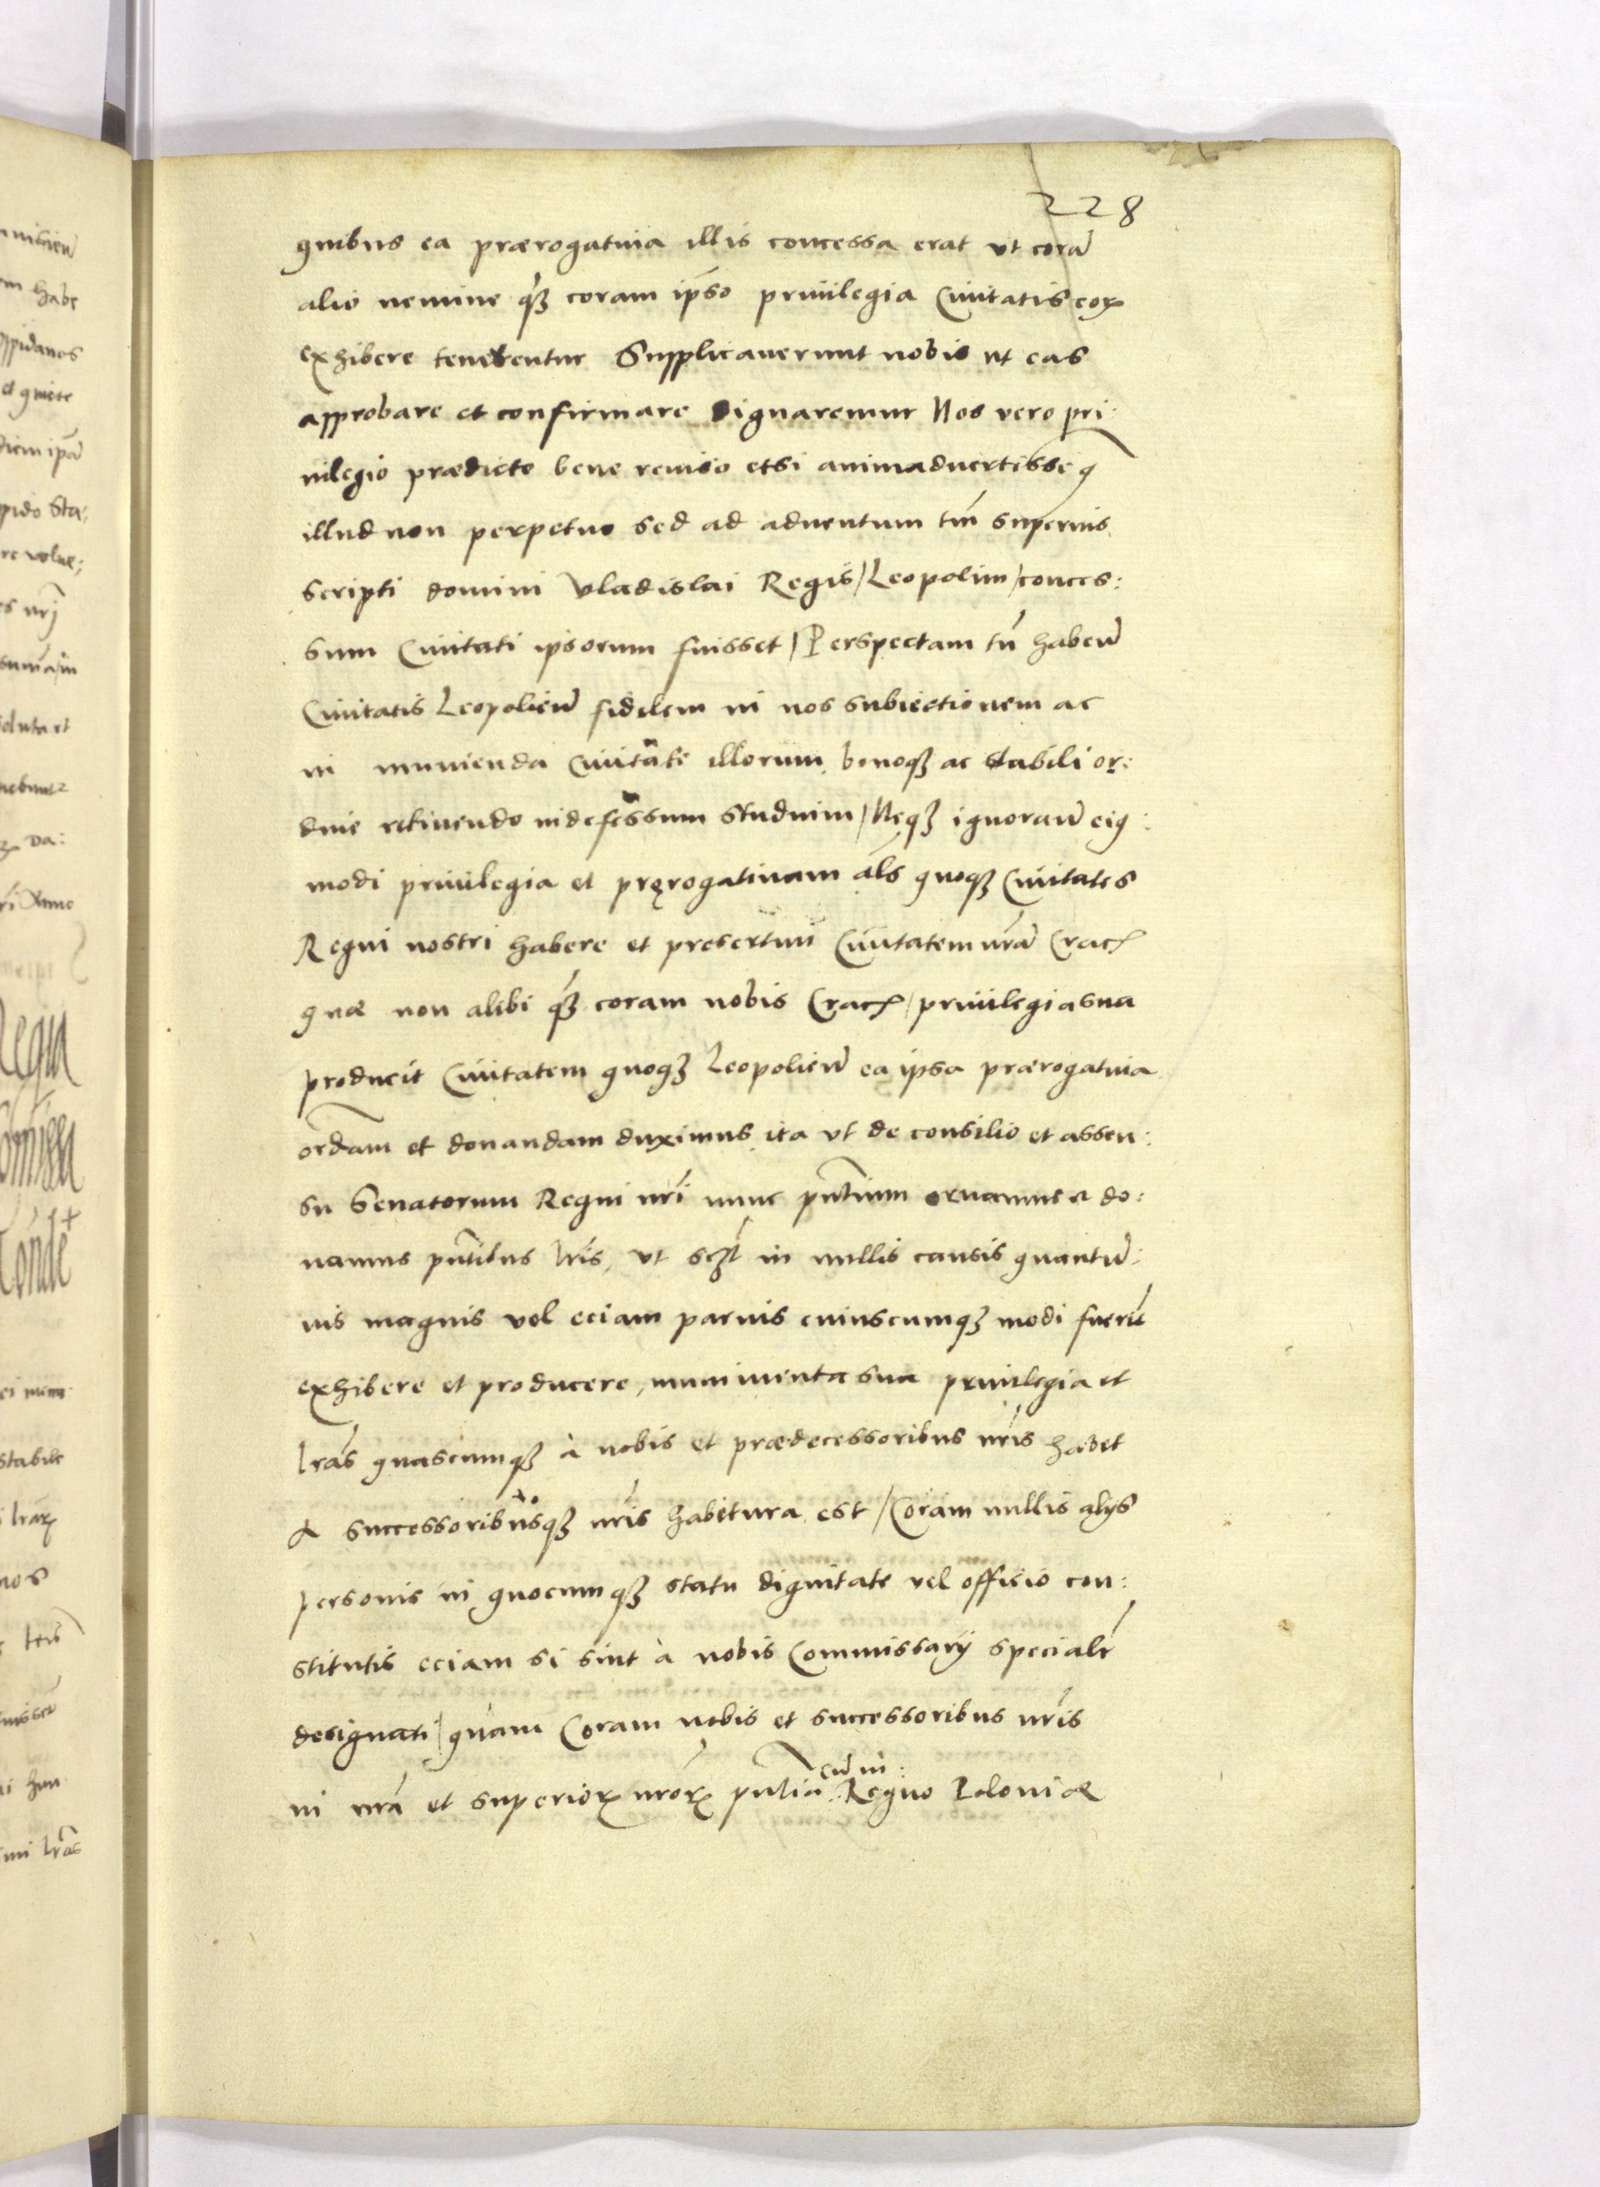 228
quibus ea prærogatiua illis concessa erat vt corã
alio nemine q̃ꝫ coram ip̃so priuilegia Ciuitatis eoꝝ
exhibere tenerentur Supplicauerunt nobis ut eas
approbare et confirmare dignaremur Nos vero pri:
uilegio prædicto bene reuiso etsi animaduertisseꝫ
illud non perpetuo sed ad aduentum tm̃ superius
scripti domini Vladislai Regis / Leopolim / conces:
sum Ciuitati ipsorum fuisset / Perspectam tñ habeñ
Ciuitatis Leopolieñ fidelem in nos subiectionem ac
in munienda Ciuitate illorum bonoqꝫ ac stabili or:
dine retinendo indefessum studium / Neqꝫ ignorañ eiꝰ:
modi priuilegia et pręrogatiuam al̃s quoqꝫ Ciuitates
Regni nostri habere et presertim Ciuitatem nrã Cracꝭ
quæ non alibi q̃ꝫ coram nobis Cracꝭ / priuilegia sua
producit Ciuitatem quoqꝫ Leopolieñ ea ipsa prærogatiua
ord̃am et donandam duximus ita vt de consilio et assen:
su Senatorum Regni nr̃i nunc pñtium ornamus et do:
namus pñtibus lr̃is, vt scꝫt in nullis causis quantũ:
uis magnis vel eciam paruis cuiuscumqꝫ modi fuerĩt
exhibere et producere, munimenta sua priuilegia et
lrãs quascumqꝫ à nobis et prædecessoribus nr̃is habet
A successoribusqꝫ nr̃is habitura est / Coram nullis alijs
personis in quocumqꝫ statu dignitate vel officio con:
stitutis eciam si sint à nobis Commissarij specialr̃
designati / quam Coram nobis et successoribus nr̃is
cũ in:
in nrã et superioꝝ nr̃oꝝ pñtia Regno Poloniæ